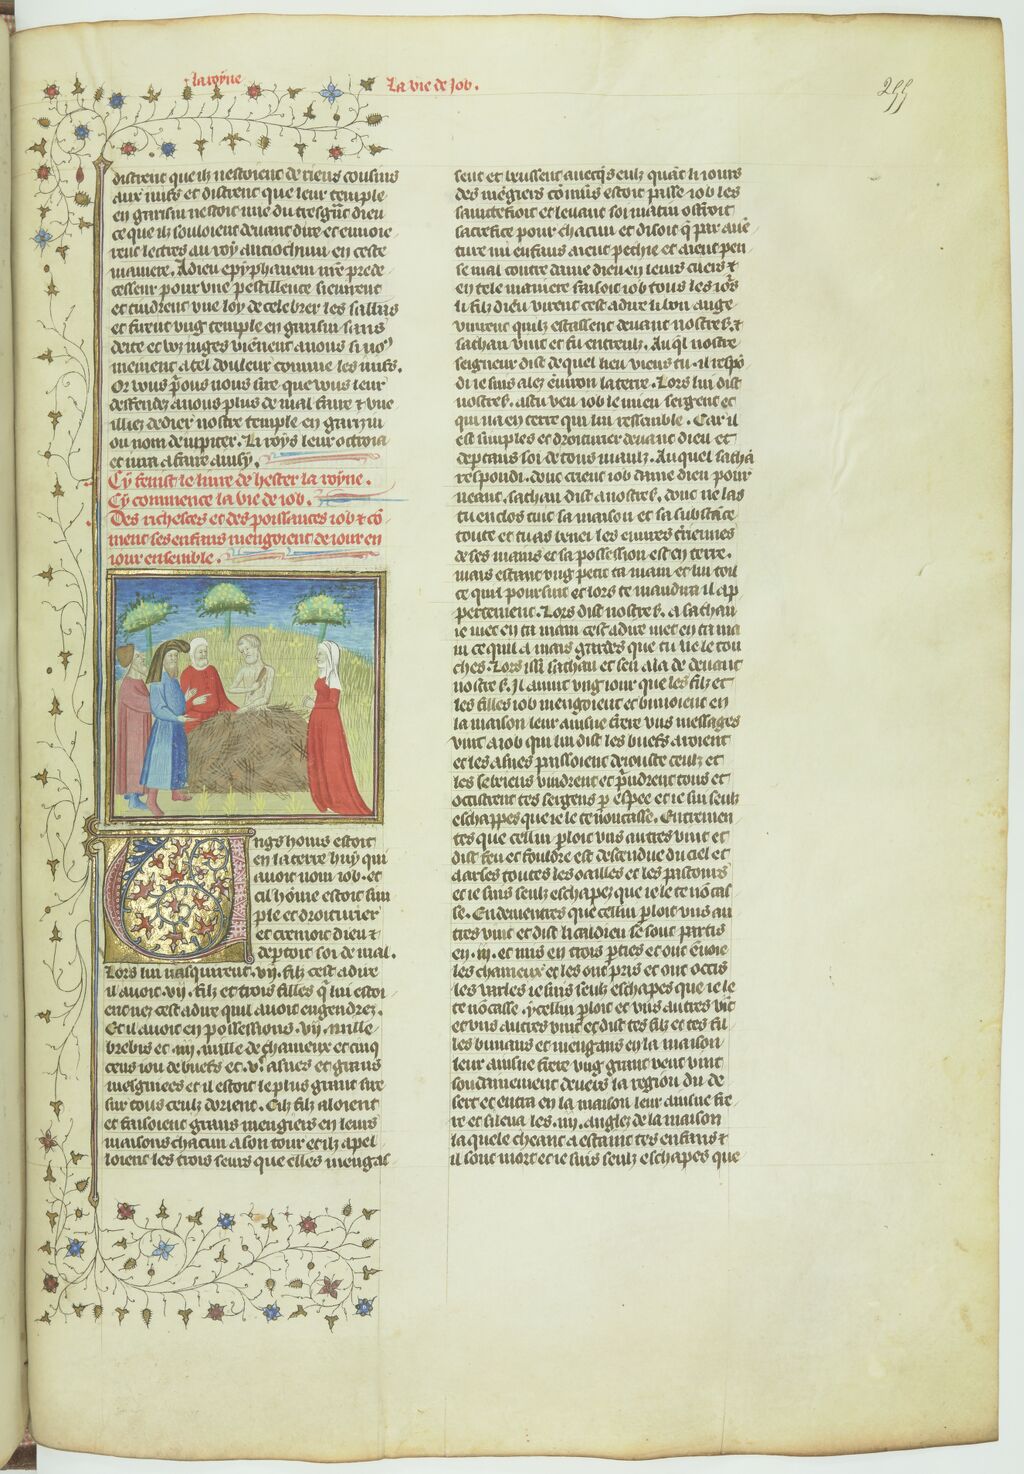 la royne
La vie de Job.
255
distrent que ilz nestoient de riens cousins
aux iuifs et distrent que leur temple
en garisin nestoit mie du tresgrāt dieu
ce que ilz souloient deuant dire et enuoie
rent lectres au roy anciochum en ceste
maniere. A dieu epyphanem nr̄e prede
cesseur pour vne pestillence
et tindrent vne loy de celebrer les
et firent vng temple en garisin sans
et voz iuges viēnent a nous si no9
mainent a tel douleur comme les iuifs.
Or vous p̄ons nous sire que vous leur
deffendez a nous plus de mal faire & vue
illiez dedier nostre temple en garizin
ou nom de iupiter. Li roys leur octroia
et iura a faire ainsy.
Cy fenist le liure de hester la royne.
Cy commence la vie de iob.
Des richesces et des poissances iob & cō
ment ses enfans mengoient de iour en
iour ensemble.
Vngs homs estoit
en la terre huy qui
auoit nom iob. et
cil hōme estoit sim
ple et droiturier
et cremoit dieu &
deptoit soi de mal.
Lors lui nasquirent .vij. filz cest adire
il auoit .vij. filz et trois filles q̄ lui estoi
ent nez cest adire quil auoit engendrez.
Et il auoit en possessions .vij. mille
brebis et .iij. mille de chameux et cinq
cens iou de buefs et .vc. asnes et grans
mesgniees et il estoit le plus grant sire
sur tous ceulz dorient. Cilz filz aloient
et faisoient grans mengiers en leurs
maisons chacun a son tour et ilz apel
loient les trois seurs que elles mengas
sent et beussent auecq̄s eulz quāt li iours
des mēgiers cōmūs estoit passe iob les
sainctefioit et leuant soi matin offroit
sacrefice pour chacun et disoit q̄ par auē
ture mi enfans aient pechie et aient pen
se mal contre dame dieu en leurs cuers &
en tele maniere faisoit iob tous les iors
li filz dieu virent cest adire li bon ange
vinrent quilz estassent deuant nostre s. &
sathan vint et fu entreulz. Au q̄l nostre
seigneur dist de quel lieu viens tu. il respō
di ie suis alez enuiron la terre. Lors lui dist
nostre s. as tu veu iob le mien sergent et
qui na en terre qui lui ressemble. Car il
est simples et droiturier deuant dieu et
deptans soi de tous maulz. Au quel sathā
respondi. donc crient iob dame dieu pour
neant. sathan dist a nostre s. donc ne las
tu enclos tuit sa maison et sa substāce
toute et tu as benei les euures
de ses mains et sa possession est en terre.
mais estant vng petit ta main et lui toil
ce quil poursuit et lors te maudira il ap
pertement. Lors dist nostre s. a sathan
ie met en ta main cest adire met en ta mai
in ce quil a mais gardes que tu ne le tou
ches. Lors issi sathan et sen ala de deuant
nostre s. Il auint vng iour que les filz et
les filles iob mengoient et buuoient en
la maison leur ainsne frere vns messages
vint a iob qui lui dist les buefs aroient
et les asnes paissoient deiouste ceulz et
les sebeiens vindrent et p̄ndrent tous et
occistrent tes sergens p̄ espee et ie sui seulz
eschappes que ie le te nōncasse. Entremen
tes que cellui p̄loit vns autres vint et
dist feu et fouldre est descendue du ciel et
a arses toutes les oeilles et les pastours
et ie suis seulz eschapez que ie le te nōcas
se. Endementres que cellui p̄loit vns au
tres vint et dist li caldieu se sont partis
en .iij. et mis en trois p̄ties et ont ēuaie
les chameux et les ont pris et ont occis
les varles ie suis seulz eschapes que ie le
te nōcasse. ycellui p̄loit et vns autres vīt
et vns autres vint et dist tes filz et tes fil
les buuans et mengans en la maison
leur ainsne frere vng grant vent vint
soudainement deuers la region du de
sert et entra en la maison leur ainsne fre
re et feri a les .iiij. anglez de la maison
la quele cheant a estaint tes enfans &
il sont mort et ie suis seulz eschapes que